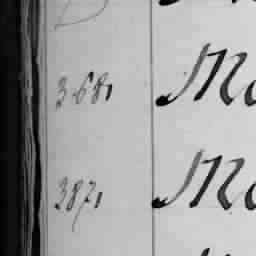 3681 Ma
3871 Ma